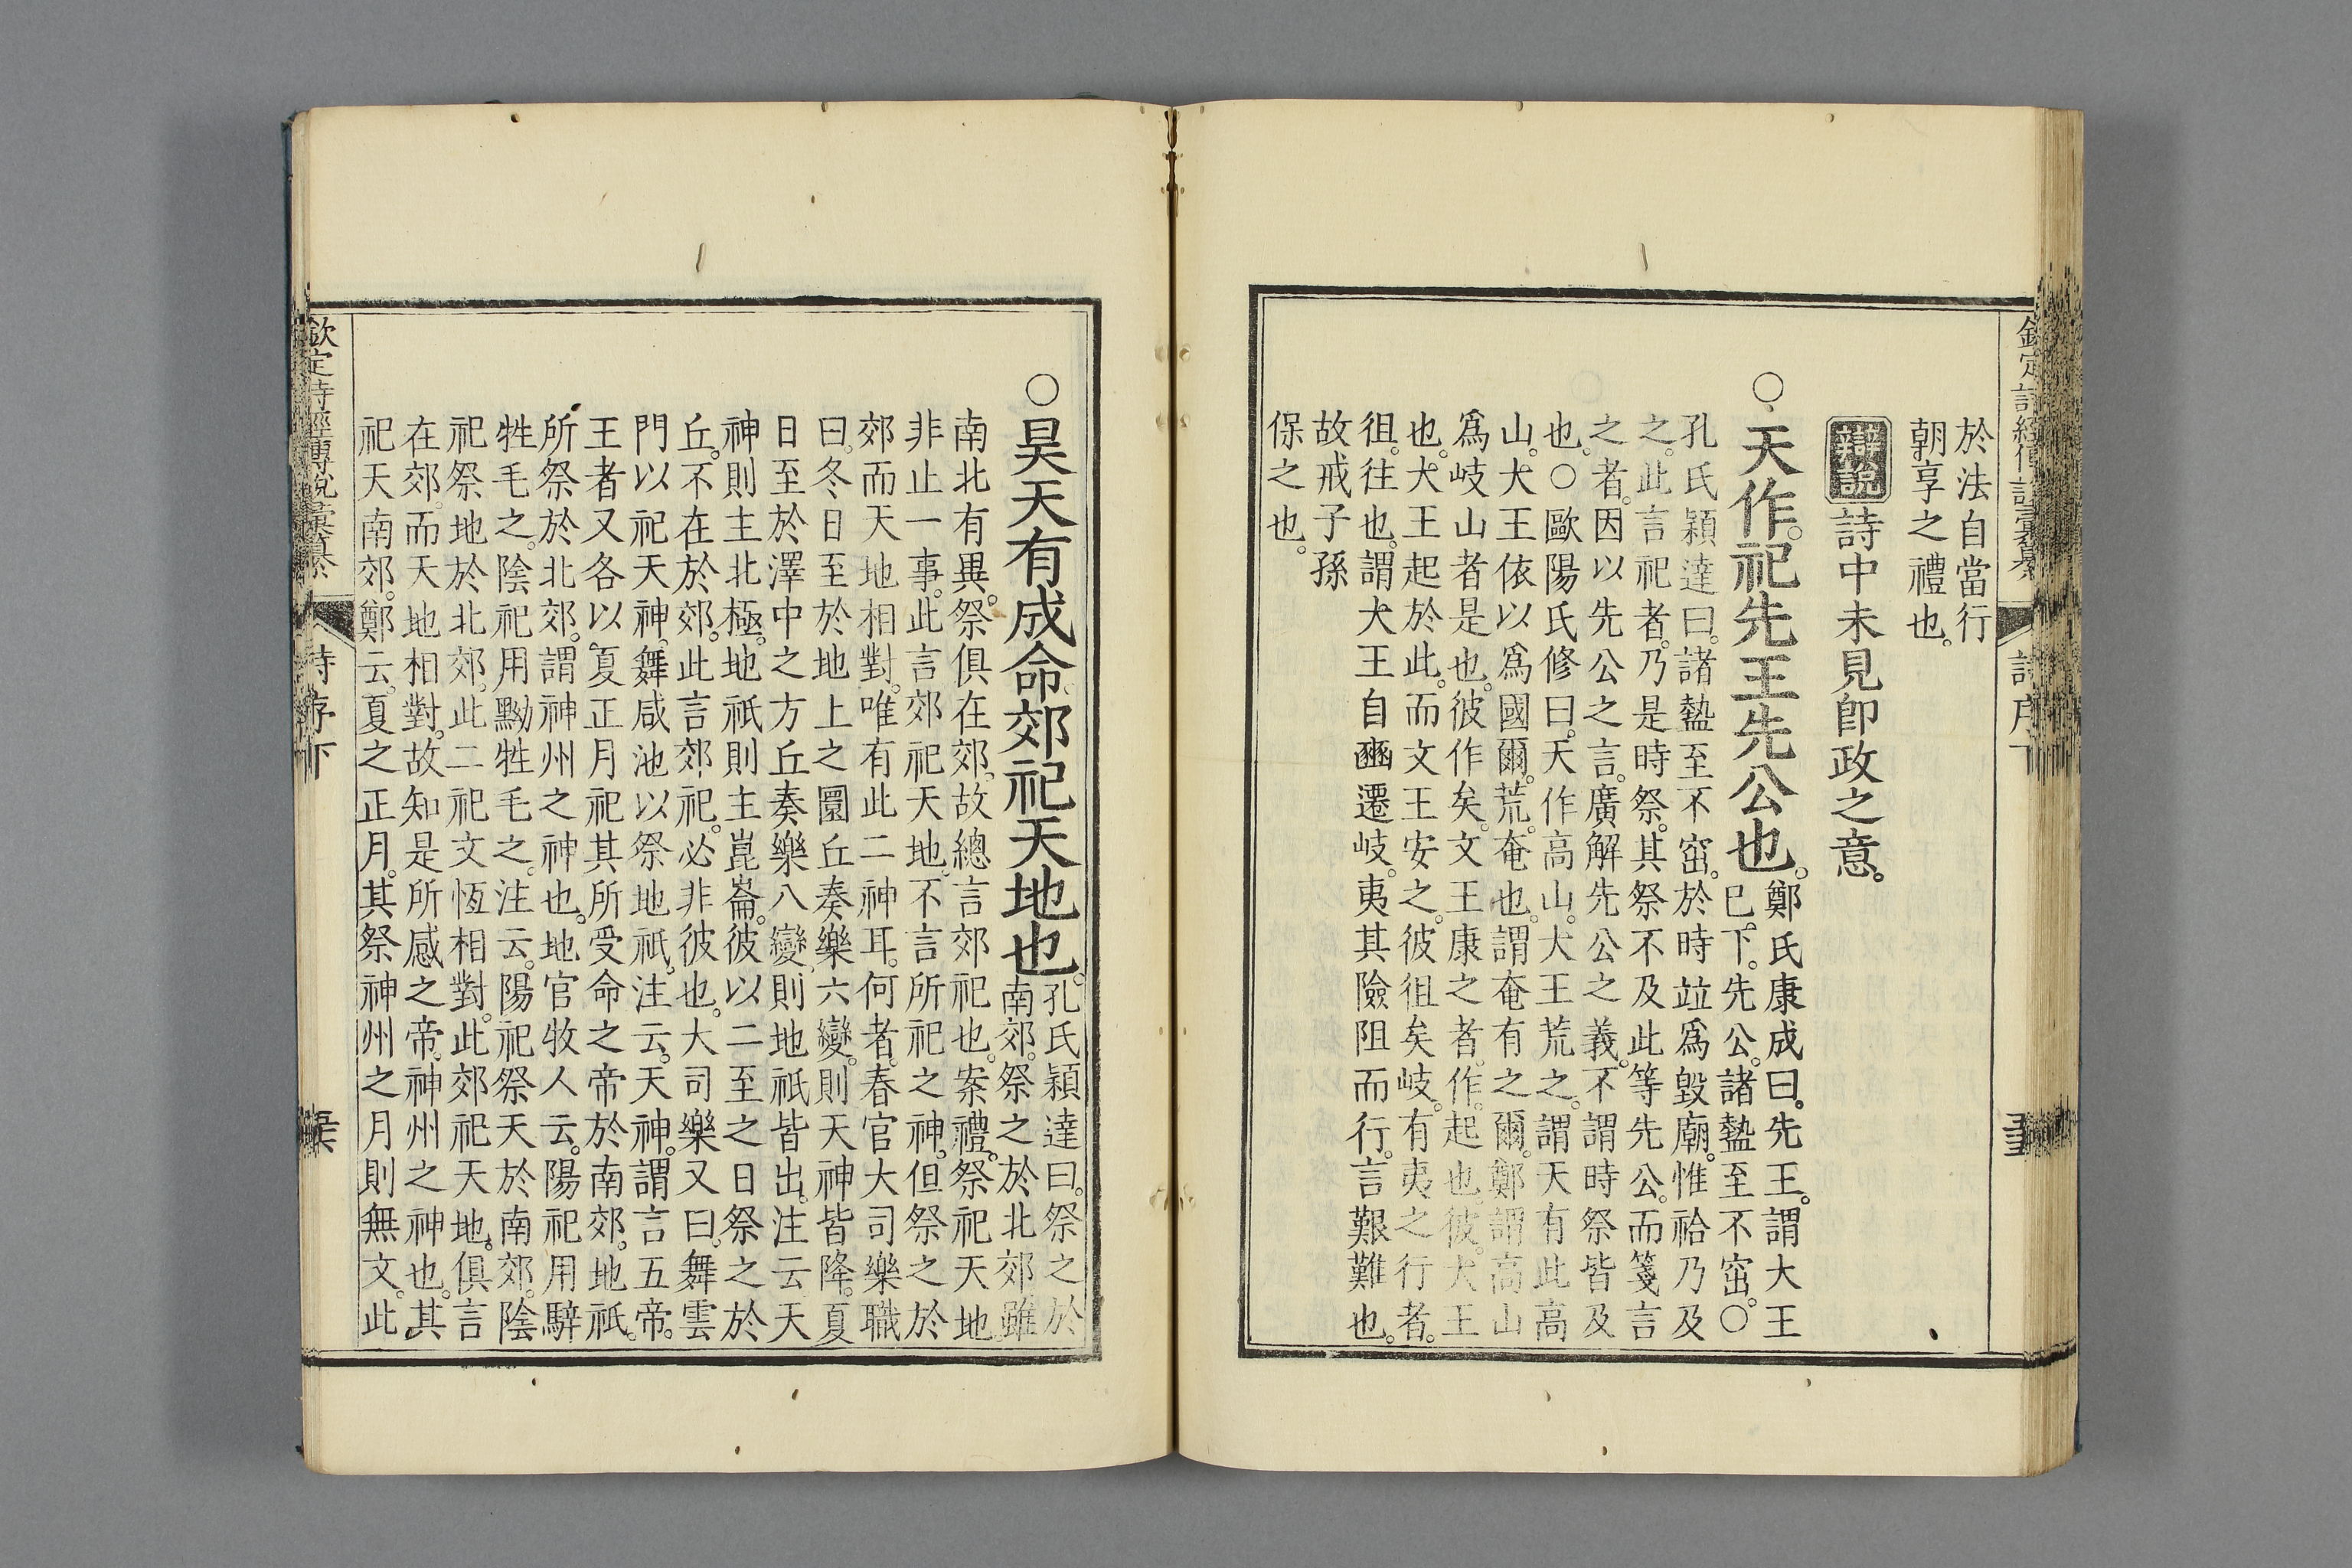 於法自當行
朝享之禮也。
辯說詩中未見卽政之意。
○天作。祀先王先公也。鄭氏康成曰。先王。謂大王
巳。下。先公。諸盩至不窋。○
孔氏穎達曰。諸盩至不窋。於時竝爲毀廟。惟祫乃及
之。此言祀者。乃是時祭。其祭不及此等先公。而箋言
之者。因以先公之言。廣解先公之義。不謂時祭皆及
也。○歐陽氏修曰。天作高山。大王荒之。謂天有此高
山。大王依以爲國爾。荒。奄也。謂奄有之爾。鄭謂高山
爲岐山者是也。彼作矣。文王康之者。作。起也。彼。大王
也。大王起於此。而文王安之。彼徂矣岐。有夷之行者。
徂。往也。謂大王自豳遷岐。夷其險阻而行。言艱難也。
故戒子孫
保之也。
○昊天有成命郊祀天地也。孔氏穎達曰。祭之於
南郊。祭之於北郊。雖
南北有異。祭俱在郊。故總言郊祀也。案禮。祭祀天地。
非止一事。此言郊祀天地。不言所祀之神。但祭之於
郊而天地相對。唯有此二神耳。何者。春官大司樂職
曰。冬日至於地上之圜丘奏樂六變。則天神皆降。夏
日至於澤中之方丘奏樂八變則地祇皆出。注云天
神則主北極。地祇則主崑崙。彼以二至之日祭之於
丘。不在於郊。此言郊祀。必非彼也。大司樂又曰。舞雲
門以祀天神。舞咸池以祭地祇。注云。天神。謂言五帝。
王者又各以夏正月祀其所受命之帝於南郊。地祇。
所祭於北郊。謂神州之神也。地官牧人云。陽祀用騂
牲毛之。陰祀用黝牲毛之。注云。陽祀祭天於南郊。陰
祀祭地於北郊。此二祀文恆相對。此郊祀天地。俱言
在郊。而天地相對。故知是所感之帝。神州之神也。其
祀天南郊。鄭云。夏之正月。其祭神州之月則無文。此
欽定詩經傳說彙纂
詩序下